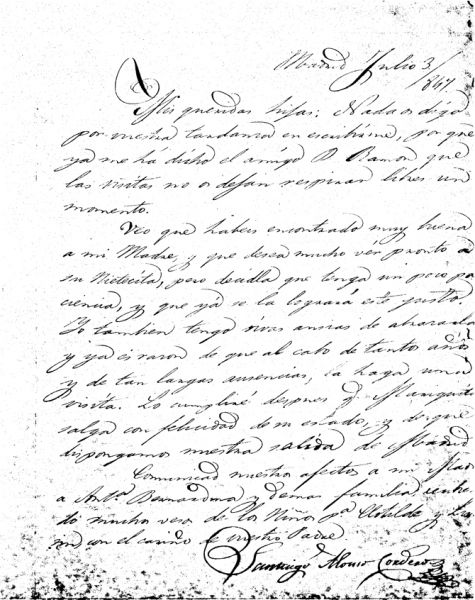 Madrid Julio 3/847
Mis queridas hijas: Nada os digo
por vuestra tardanza en escribirme, por que
ya me há dicho el amigo D. Ramon que
las visitas no os dejan respirar libres un
momento.
Veo que habeis encontrado muy buena
a mi Madre, y que desea mucho vér pronto a
su Nietecita, pero decidla que tenga un poco pa
ciencia, y que yá se la logrará este gusto.
Yo tambien tengo vivas ansias de abrazarla
y ya es razon de que al cabo de tanto año
y de tan largas ausencias, la haga una
visita. Lo cumpliré despues q.
salga con felicidad de su estado, y de que
dispongamos nuestra salida de Madrid
Comunicad nuestro afecto a mi Madre
a Ant.ª Bernardina y demas familia
to muchos vesos de los Niños, p.ª Clotilde y
con el cariño de vuestro Padre
Santiago Alonso Cordero